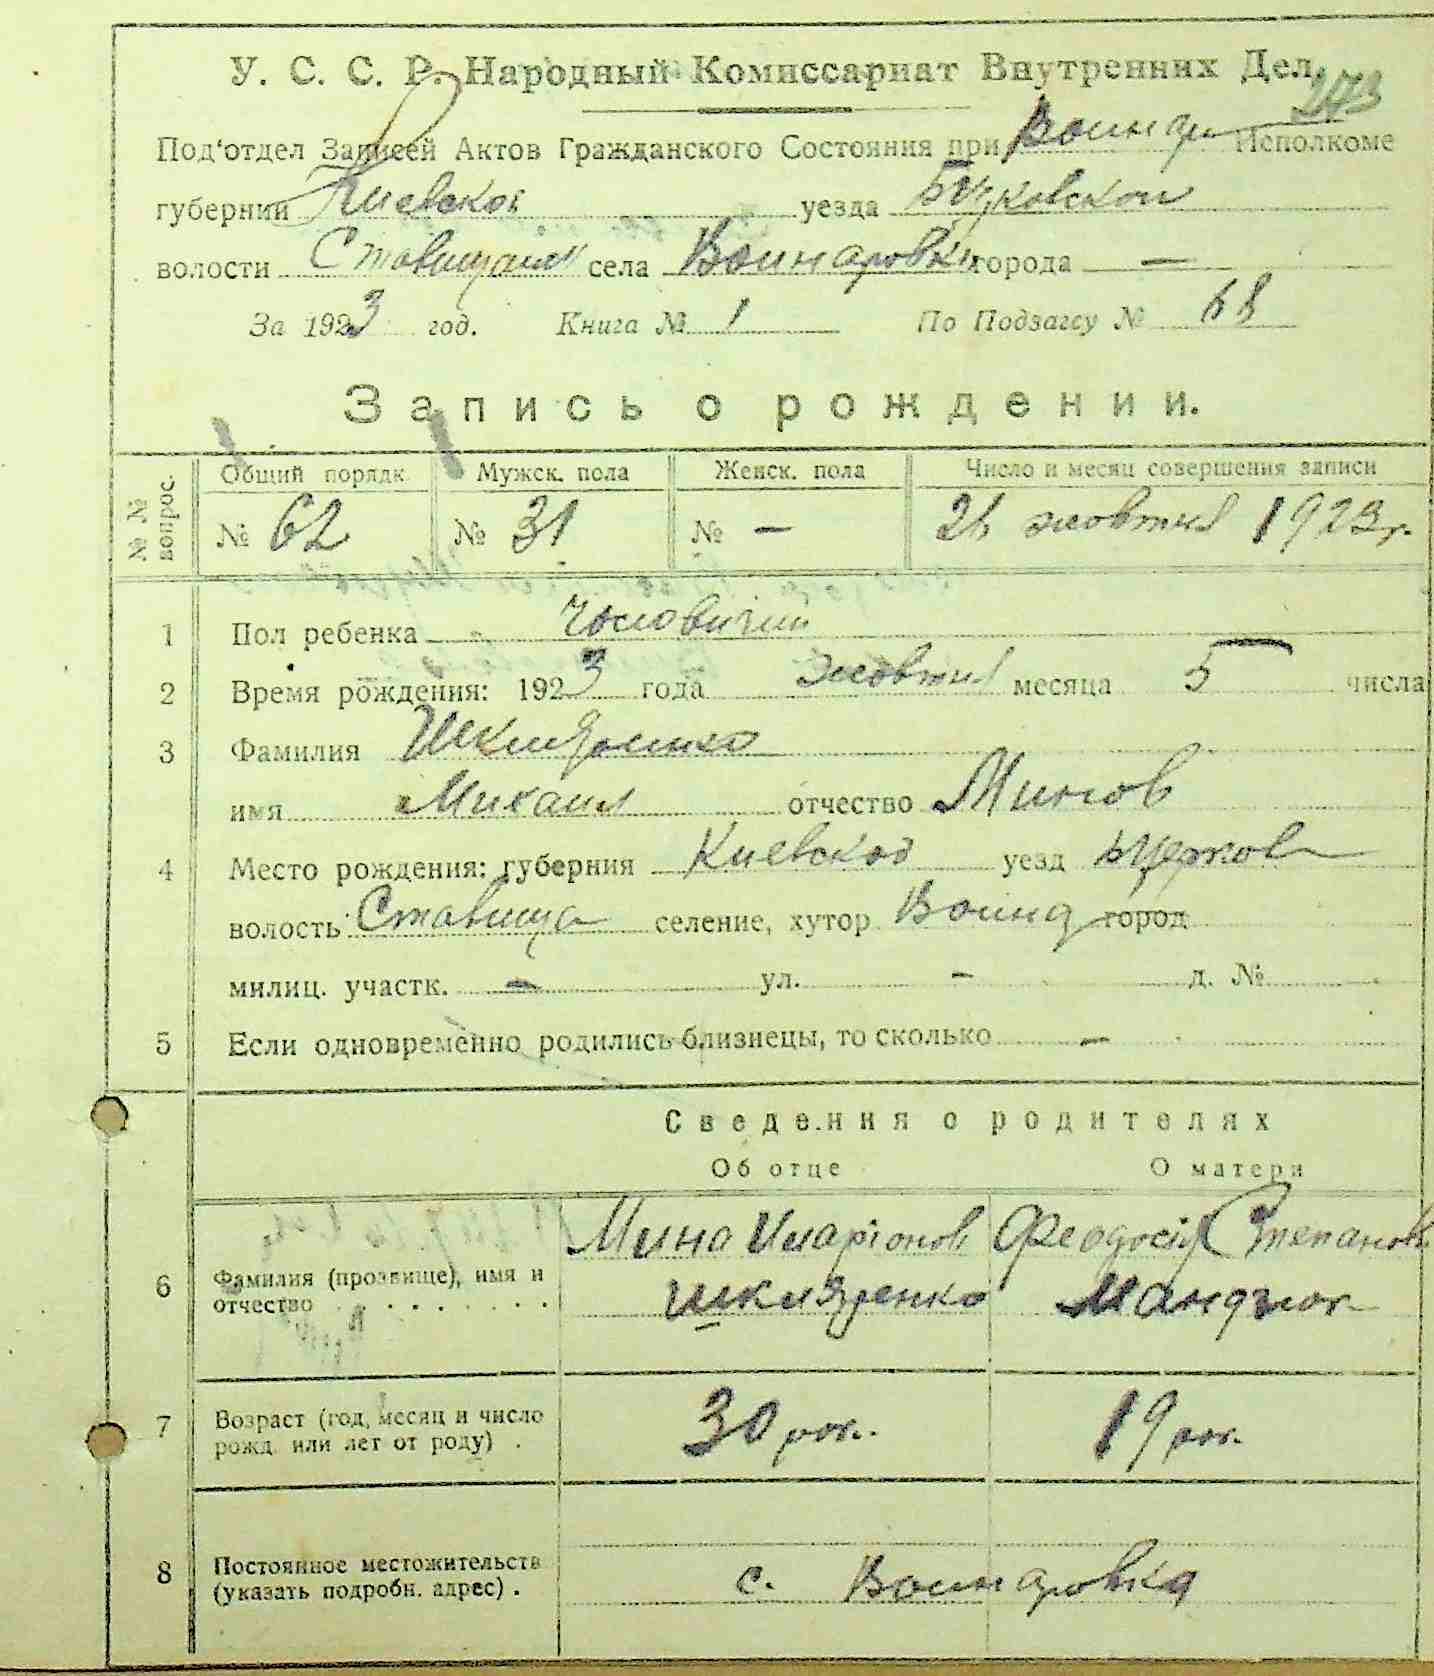 У. С. С. Р. Народный Комиссариат Внутренних Дел.
273
Под'отдел Записей Актов Гражданского Состояния при Воинар Исполкоме
губернии Киевской уезда
волости села Воинаровки города —
За 1923 год. Книга № 1 По Подзагсу № 68
Запись о рождении.
№ № вопрос. Общий порядк Мужск. пола Женск. пола Число и месяц совершения записи
№ 62 № 31 № — жовтня 1923 г.
1 Пол ребенка Чоловичий
2 Время рождения: 1923 года жовтня месяца 5 числа
3 Фамилия Шкляренко
имя Михаил отчество Минов
4 Место рождения: губерния Киевской уезд Бцерков
волость Ставища селение, хутор Воинар город
милиц. участк. — ул. — д. №
5 Если одновременно родились близнецы, то сколько —
Сведения о родителях
Об отце О матери
Мина Иларіонов Феодосія Степанов
6 Фамилия (прозвище), имя и отчество Шкляренко Мандзюк
7 Возраст (год, месяц и число рожд или лет от роду) . 30 рок. 19 рок.
8 Постоянное местожительств (указать подробн. адрес) . с. Воинаровка